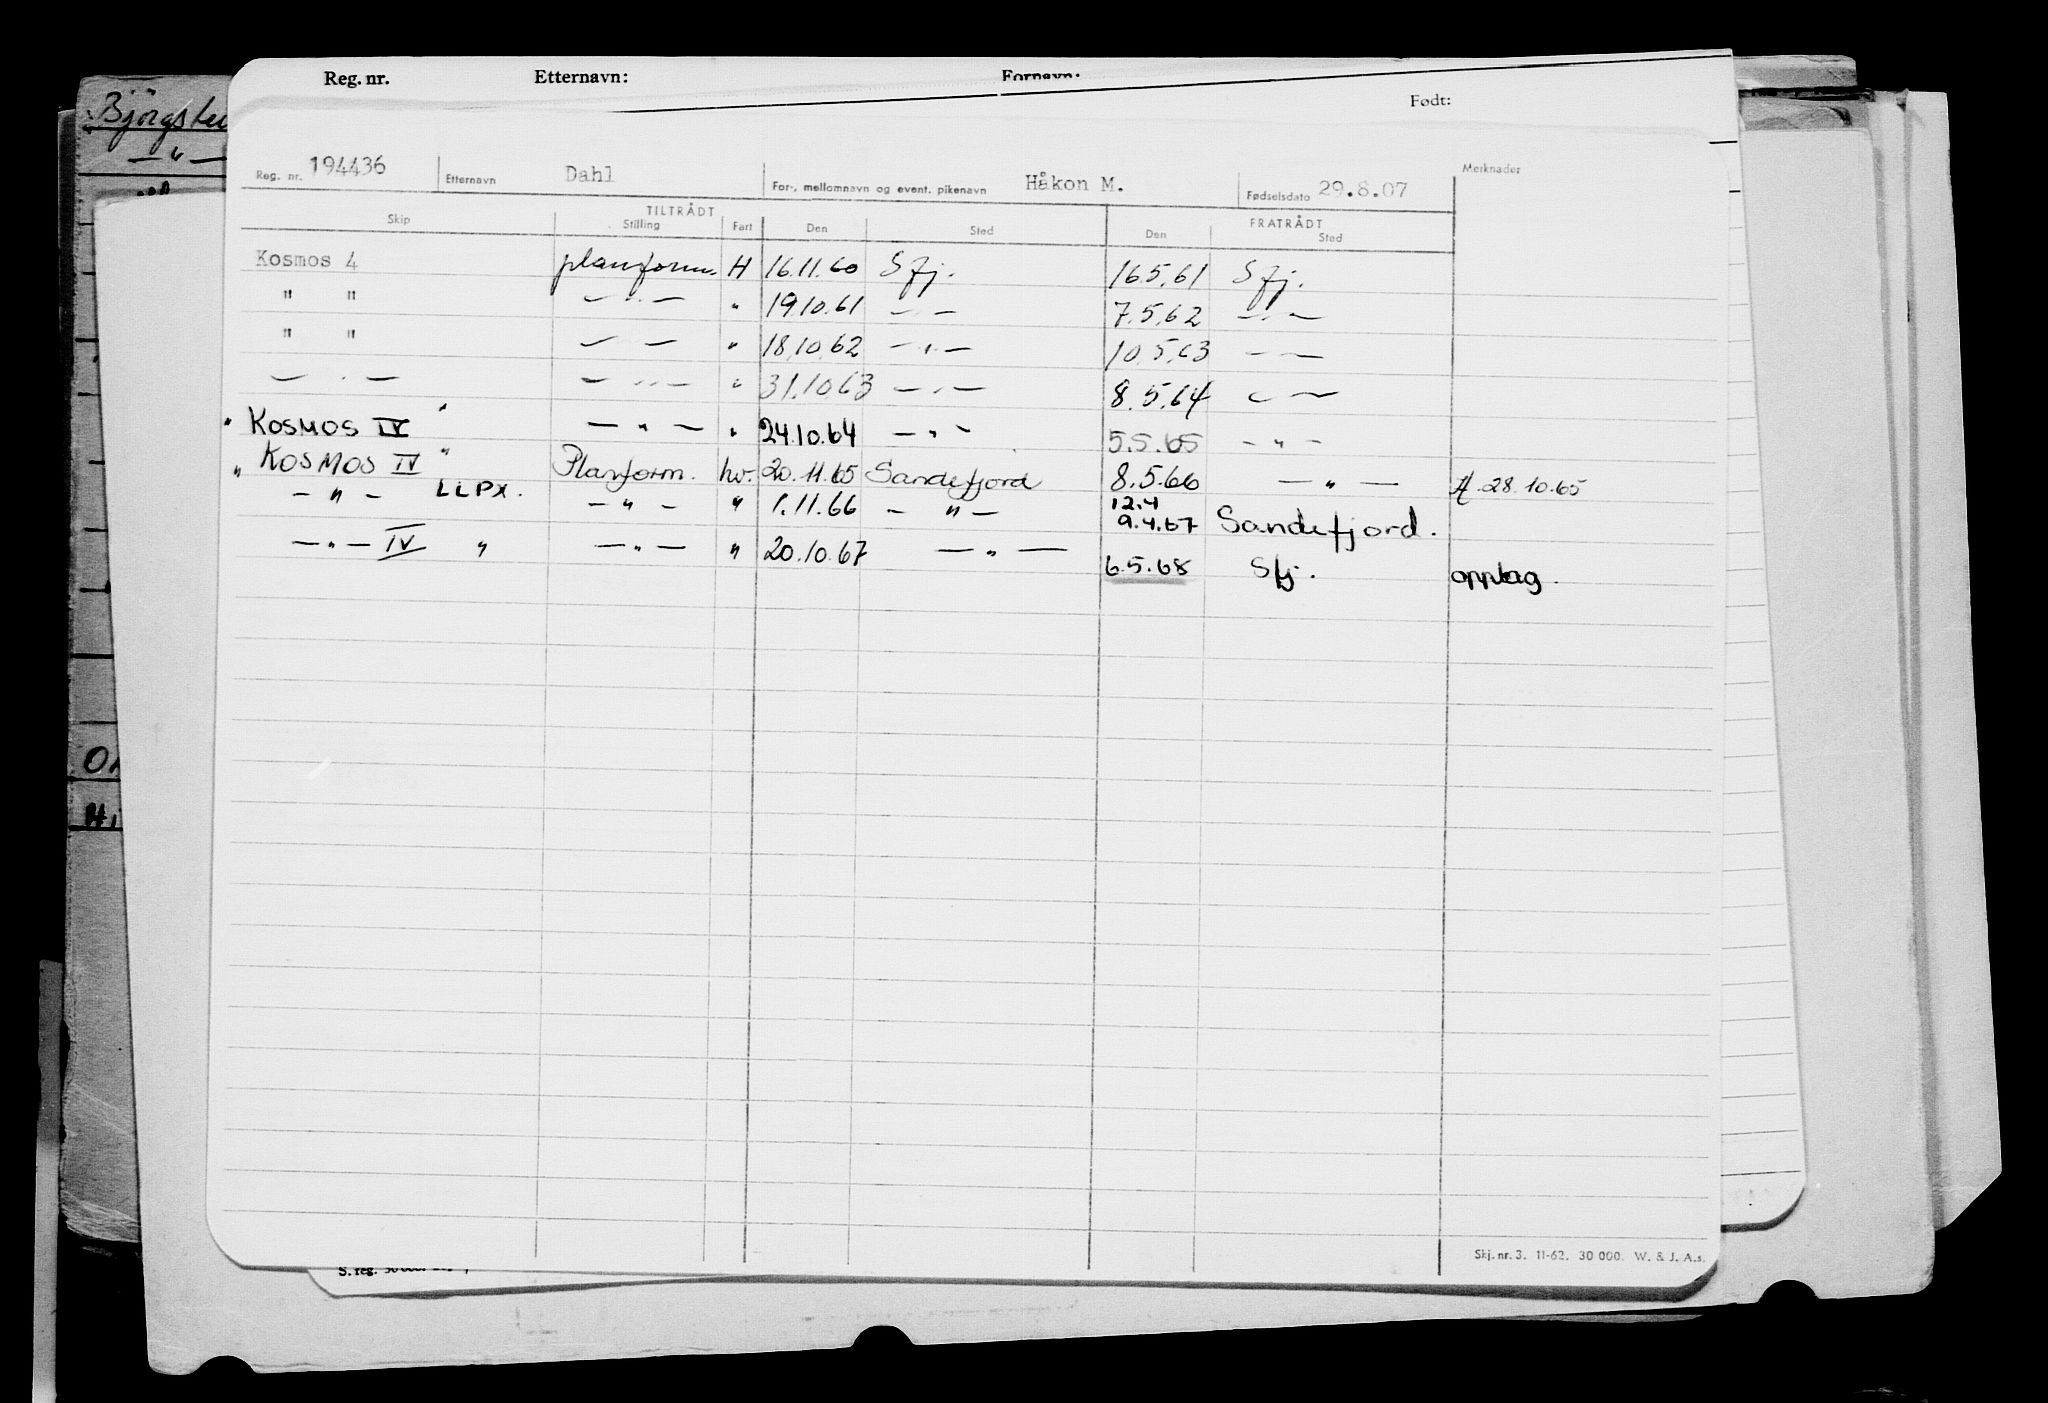 Reg. nr. Etternavn: Fornavn:
Født:
Björgstei
— " —
Reg. nr. 194436 Etternavn Dahl For-, mellomnavn og event. pikenavn Håkon M. Fødselsdato 29.8.07 Merknader
TILTRÅDT FRATRÅDT
Skip Stilling Fart Den Sted Den Sted
Kosmos 4 planform. H 16.11.60 Sfj. 16.5.61 Sfj.
" " — " — " 19.10.61 — " — 7.5.62 — " —
" " — — " 18.10.62 — " — 10.5.63 — —
— " — — " — " 31.10.63 — " — 8.5.64 — —
" KOSMOS IV " — " — " 24.10.64 — " — 5.5.65 — " —
" KOSMOS IV " Planform. hv. 20.11.65 Sandefjord 8.5.66 — " — A. 28.10.65
— " — LLPX. — " — " 1.11.66 — " — 12.4
9.4.67 Sandefjord.
— " — IV " — " — " 20.10.67 — " — 6.5.68 Sfj. opplag.
Skj. nr. 3. 11-62. 30 000. W. & J. A.s.
S. reg.